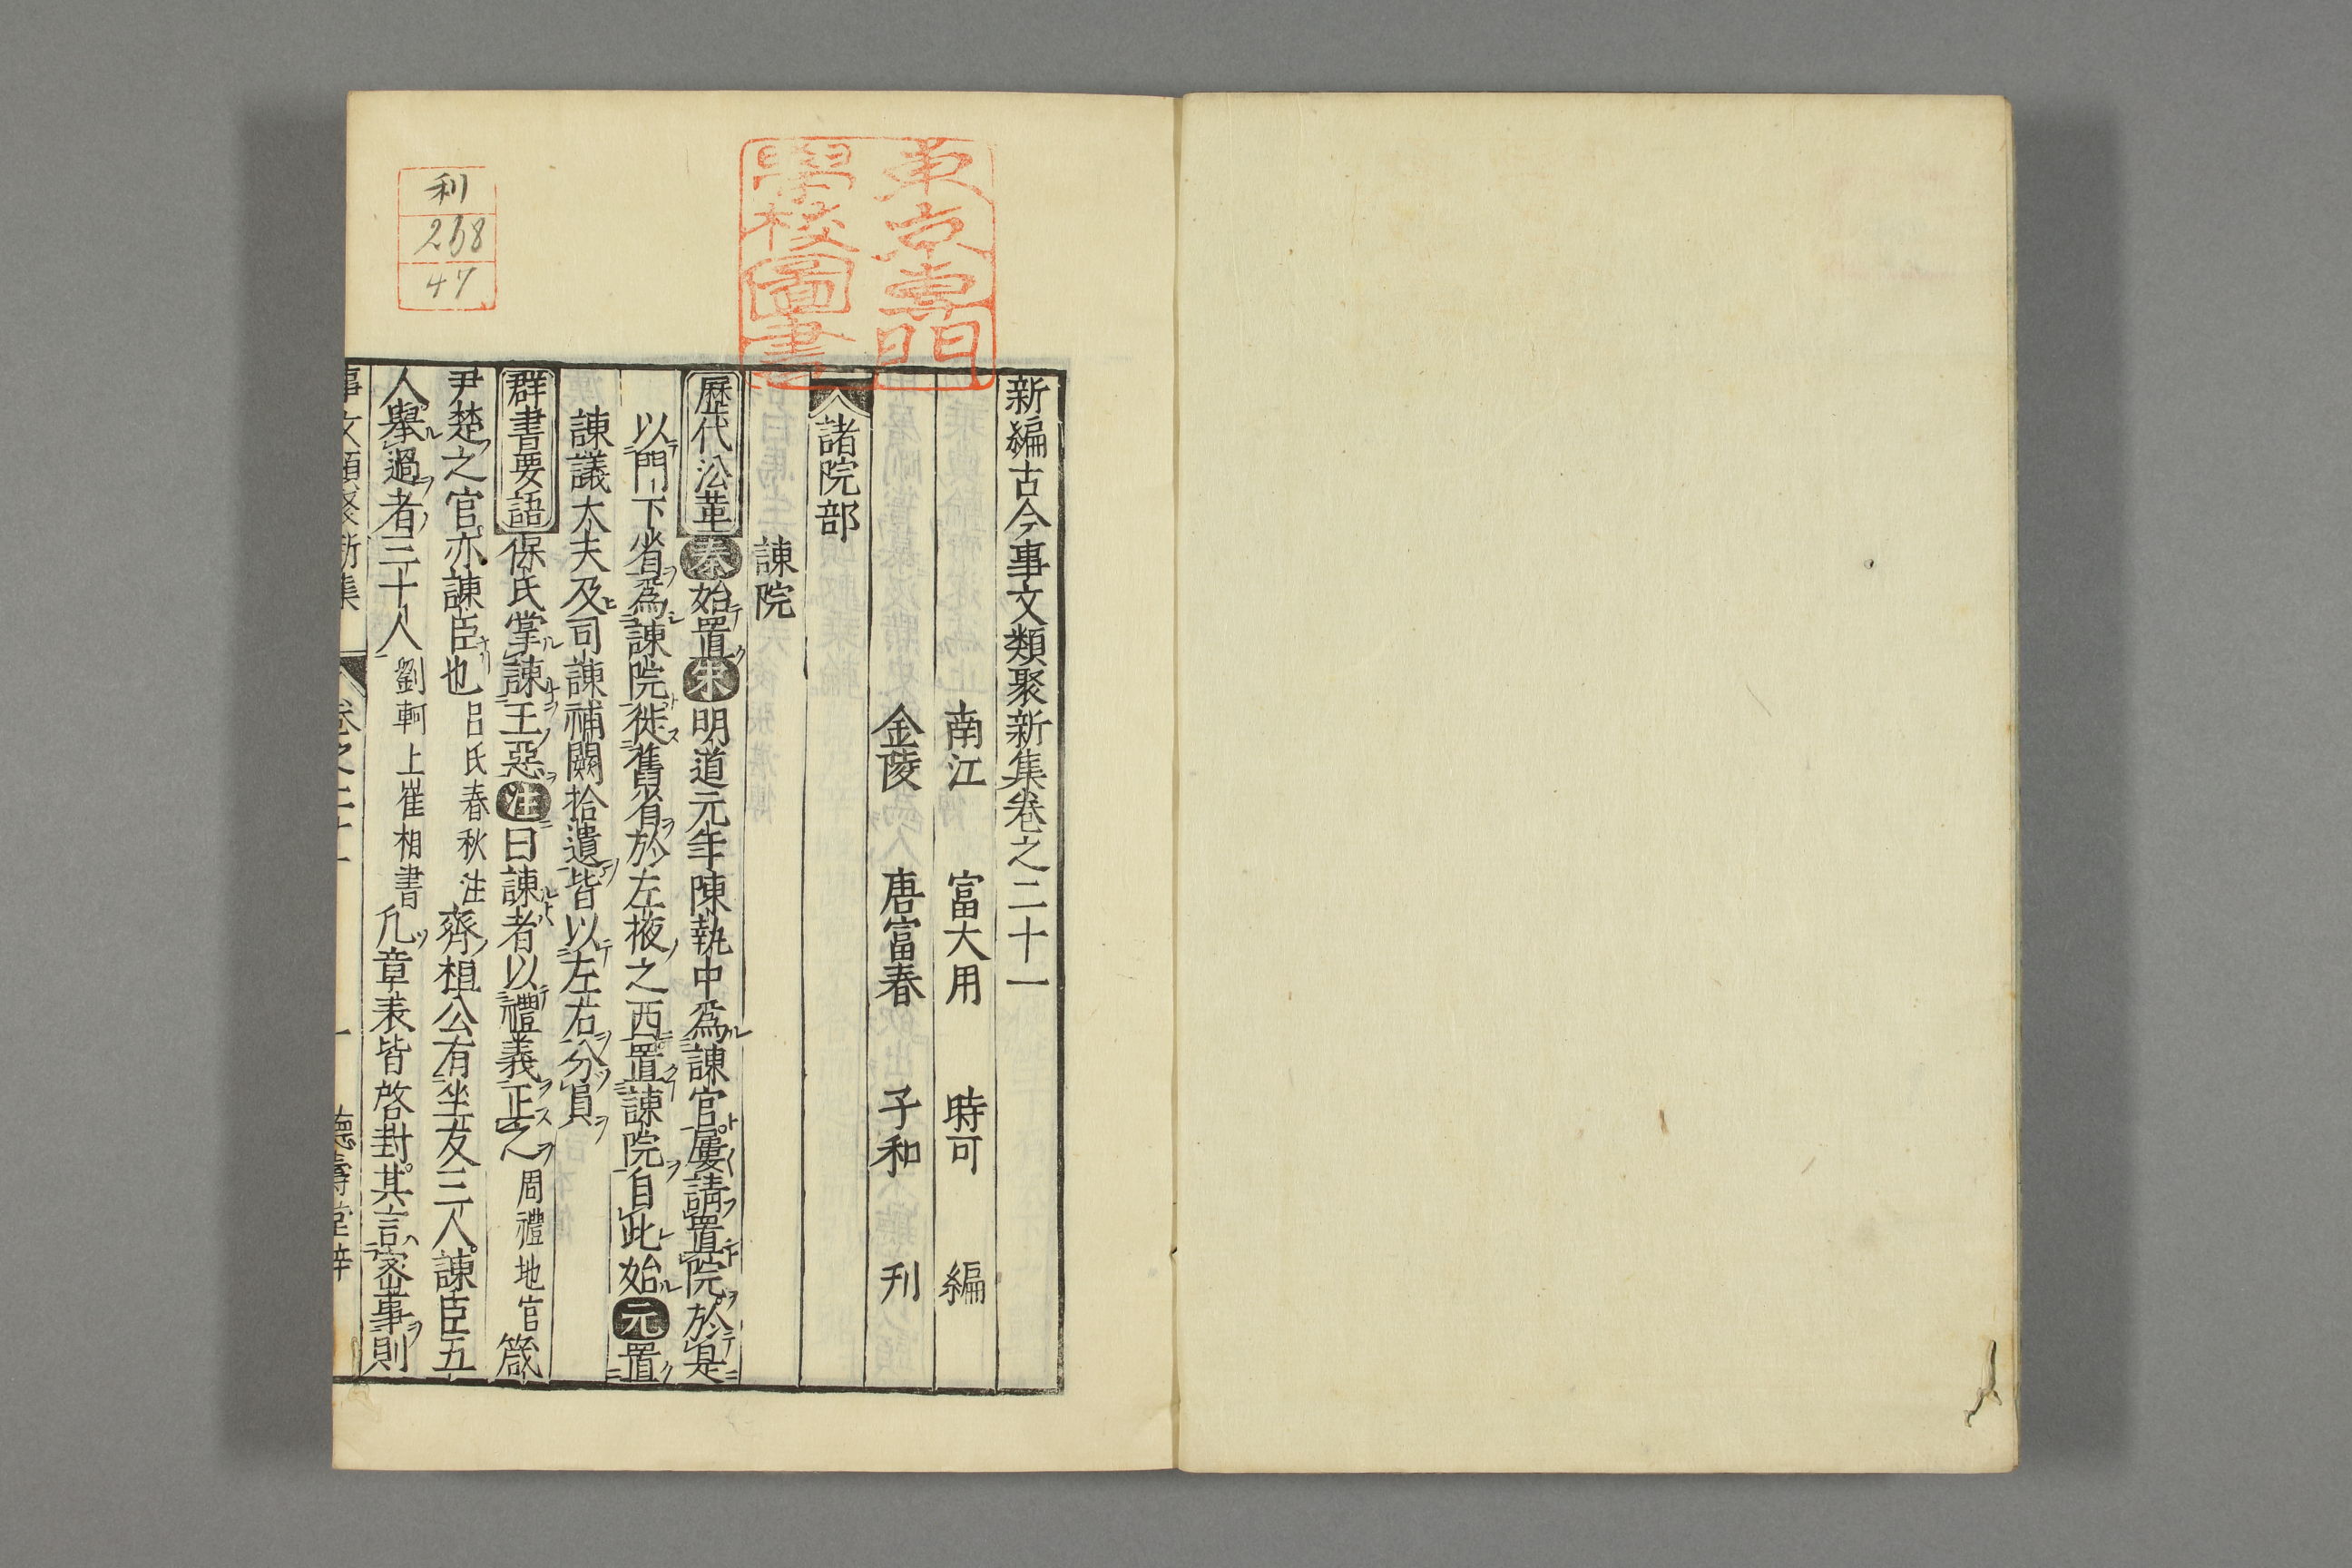 新編古今事文類聚新集卷之二十一
南江 富大用 時可 編
金陵 唐富春 子和 刊
諸院部
諫院
歷代沿革 秦始置宋明道元年陳執中爲諫官屢請置院於是
以門下省爲諫院徙舊省於左掖之西置諫院自此始元置
諫議大夫及司諫補闕拾遺皆以左右分員
群書要語 保氏掌諫王惡注曰諫者以禮義正之周禮地官箴
尹楚之官亦諫臣也呂氏春秋注齊桓公有坐友三人諫臣五
人舉過者三十人劉軻上崔相書凡章表皆啓封其言密事則
事文類聚新集 卷之二十一 一 德壽堂梓
東京專門
學校圖書
利
268
47